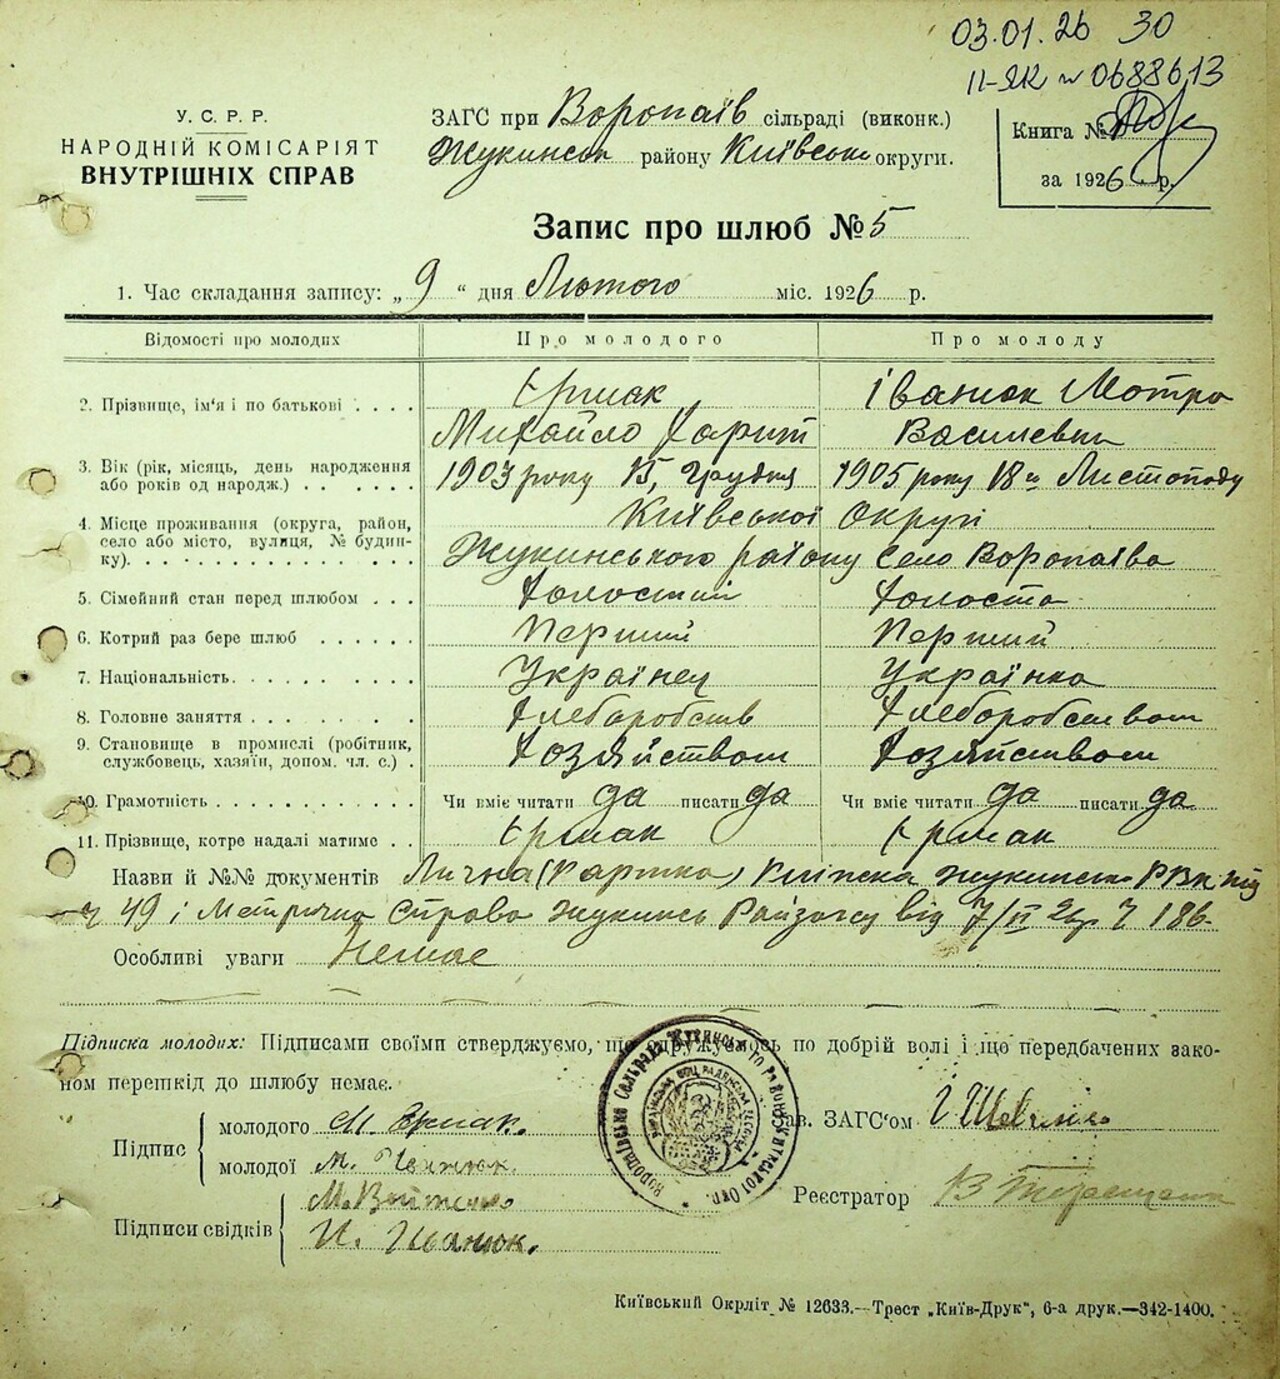 03.01.26 30
II-ЯК № 068861,3
У. С. Р. Р.
НАРОДНІЙ КОМІСАРІЯТ
ВНУТРІШНІХ СПРАВ
ЗАГС при Воропаїв сільраді (виконк.)
Жукинськ району Київськ округи.
Книга №
за 1926 р.
Запис про шлюб № 5
1. Час складання запису: „ 9 “ дня Лютого міс. 1926 р.
Відомості про молодих Про молодого Про молоду
2. Прізвище, ім'я і по батькові . . . . Єрмак Іванюк Мотра
Михайло Харит Василевна
3. Вік (рік, місяць, день народження 1903 року 15, Грудня 1905 року 18го Листопаду
або років од народж.) . . . . . .
4. Місце проживання (округа, район, Київської Округи
село або місто, вулиця, № будин- Жукинського району село Воропаїва
ку). . . . . . . . . . . . . . .
5. Сімейний стан перед шлюбом . . . Холостий Холоста
6. Котрий раз бере шлюб . . . . . . Перший Перший
7. Національність. . . . . . . . . . Українец Українка
8. Головне заняття . . . . . . . . Хлеборобств Хлеборобством
9. Становище в промислі (робітник, Хозяйством Хозяйством
службовець, хазяїн, допом. чл. с.) .
10. Грамотність . . . . . . . . . . . Чи вміє читати да писати да Чи вміє читати да писати да
11. Прізвище, котре надалі матиме . . Єрмак Єрмак
Назви й №№ документів Лична (Картка) Жукинськ РВК під
ч 49 і Метрична Справа Жукинсь Райзагсу від 7/II 26р ч 186.
Особливі уваги Немає
Підписка молодих: Підписами своїми стверджуємо, що одружуємось по добрій волі і що передбачених зако-
ном перешкід до шлюбу немає.
Підпис молодого М. Єрмак.
молодої М. Іванюк.
Зав. ЗАГС'ом
Реєстратор
Підписи свідків
И. Іванюк.
Воропаївська Сельрада Жукинського району Київської Окр.
Київський Окрліт № 12633.—Трест „Київ-Друк“, 6-а друк.—342-1400.